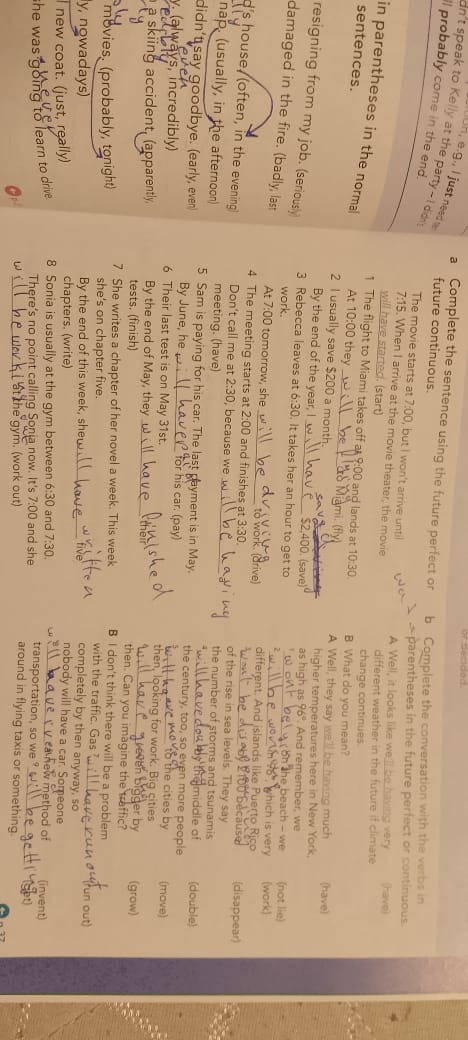 dn't speak to Kelly at the party – I didn't
ll probably come in the end.
in parentheses in the normal
sentences.
resigning from my job. (seriously)
damaged in the fire. (badly, last
d's house. (often, in the evening)
nap. (usually, in the afternoon)
didn't say goodbye. (early, even)
even
y. (always, incredibly)
skiing accident. (apparently,
movies. (probably, tonight)
ly, nowadays)
new coat. (just, really)
never
she was going to learn to drive
a Complete the sentence using the future perfect or
future continuous.
The movie starts at 7:00, but I won't arrive until
7:15. When I arrive at the movie theater, the movie
will have started. (start)
1 The flight to Miami takes off at 9:00 and lands at 10:30.
At 10:00 they will be flying to Miami. (fly)
2 I usually save $200 a month.
By the end of the year, I will have saved $2,400. (save)
3 Rebecca leaves at 6:30. It takes her an hour to get to
work.
At 7:00 tomorrow, she will be driving to work. (drive)
4 The meeting starts at 2:00 and finishes at 3:30.
Don't call me at 2:30, because we will be having
meeting. (have)
5 Sam is paying for his car. The last payment is in May.
By June, he will have paid for his car. (pay)
6 Their last test is on May 31st.
By the end of May, they will have finished their
tests. (finish)
7 She writes a chapter of her novel a week. This week
she's on chapter five.
By the end of this week, she will have written five
chapters. (write)
8 Sonia is usually at the gym between 6:30 and 7:30.
There's no point calling Sonia now. It's 7:00 and she
will be working at the gym. (work out)
b Complete the conversation with the verbs in
parentheses in the future perfect or continuous.
A Well, it looks like we'll be having very (have)
different weather in the future if climate
change continues.
B What do you mean?
A Well, they say we'll be having much (have)
higher temperatures here in New York,
as high as 96°. And remember, we
1 won't be lying on the beach – we (not lie)
2 will be working which is very (work)
different. And islands like Puerto Rico
because (disappear)
of the rise in sea levels. They say
the number of storms and tsunamis
4 will have doubled by the middle of (double)
the century, too, so even more people
will have moved to the cities by (move)
then, looking for work. Big cities
will have grown bigger by (grow)
then. Can you imagine the traffic?
B I don't think there will be a problem
with the traffic. Gas will have run out (run out)
completely by then anyway, so
nobody will have a car. Someone
new method of (invent)
transportation, so we will be getting (get)
around in flying taxis or something.
p.37